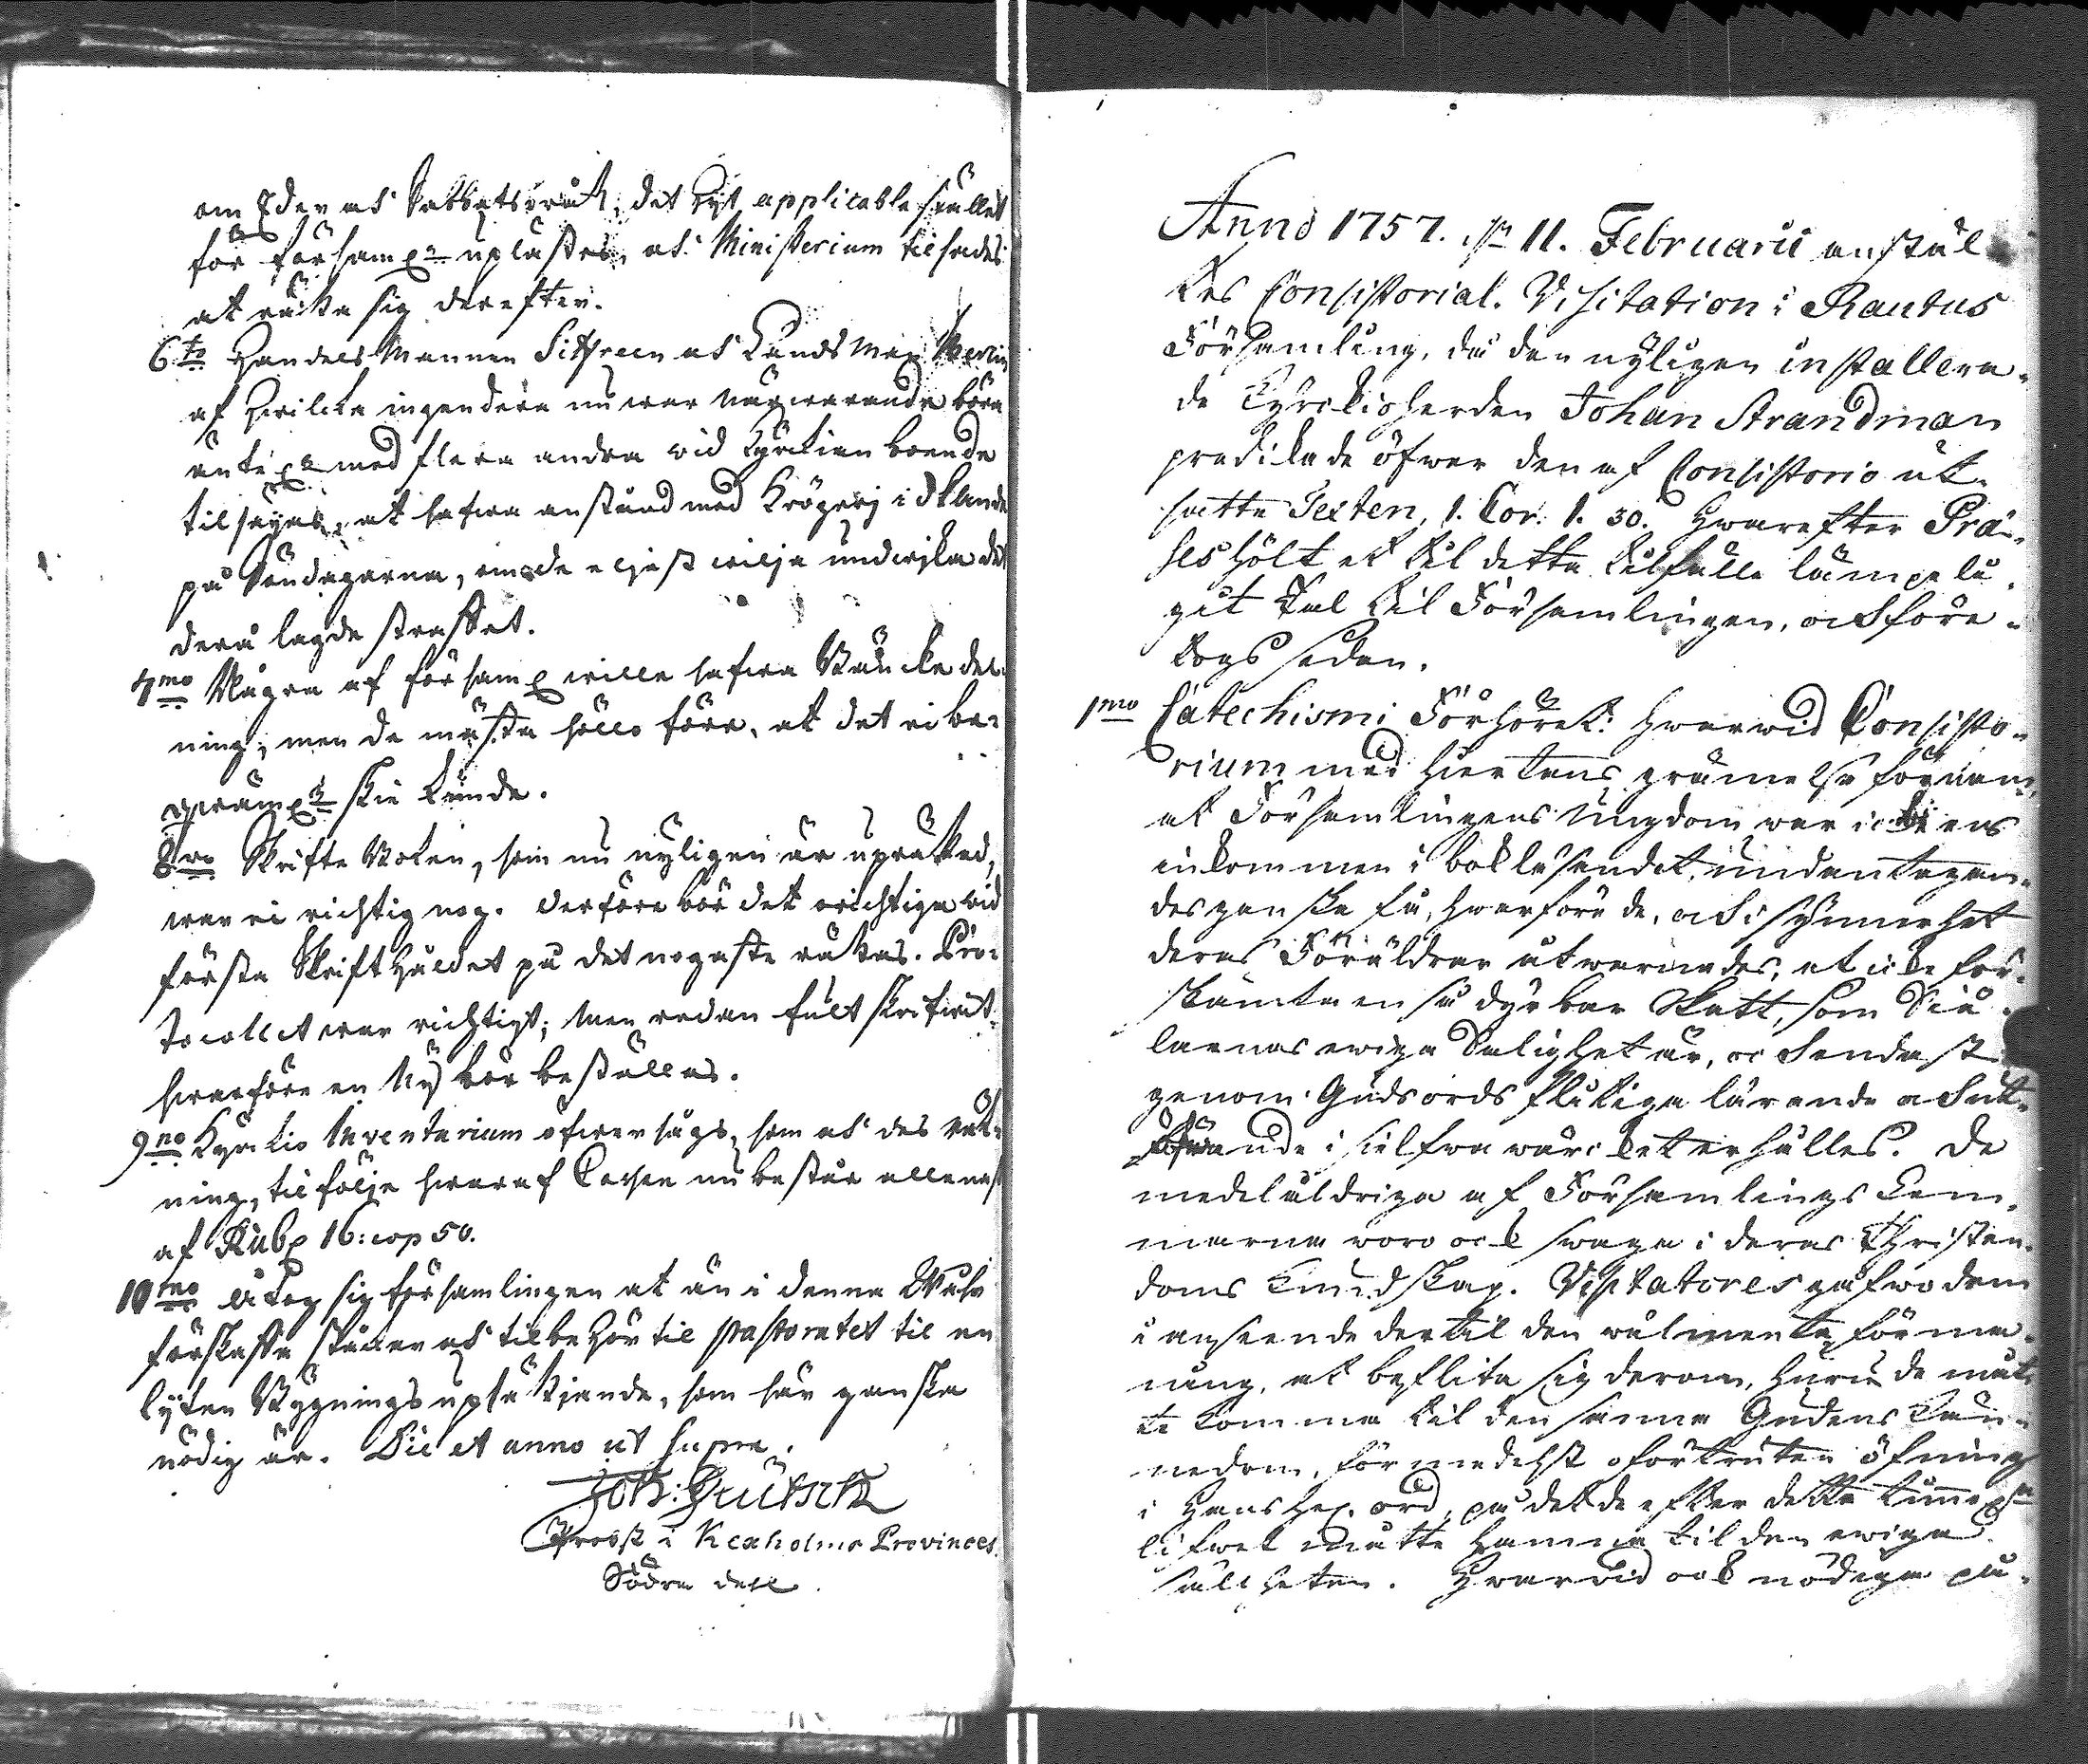 om Eder och Sabbatsbrått, det hijt applicable stället
för församl:n uplästes, och Ministerium tilsades
at rätta sig derefter.
6to Handels Mannen Sithreen och Lands Man
af hwilcka ingendera nu war närwarande böra
med flera andra wid Kyrckian boende
tilsäjas, at hafwa anstånd med Krögerij i
på Söndagarna, om de eljest wilja undwijka det
derå lagde straffet.
7mo Några af församl. wille hafwa Bänckedel-
ning; men de mästa höllo före, at det ei be-
qwäml:n skie kunde.
8vo Skrifte Boken, som nu nyligen är uprättad,
war ei richtig nog. Derföre bör det orichtiga wid
första Skrifthållet på det nogaste rättas. Pro-
tocollet war richtigt; men redan fult skrifwit
hwarföre en Ny bör beställas.
9no Kyrckio Inventarium öfwersågs, som och des räk-
ning, til följe hwaraf Cassen nu består allenast
af Rub. 16: cop 50.
10mo åtog sig församlingen at än i denna Wåhr
förskaffa stockar och tilbehör til Pastoratet til en
lijten Bygnings upsättjande, som här ganska
nödig är. Die et anno ut supra.
Joh: Grütsch
Probst i Kexholms Provinces
Södra deel.
Anno 1757. d. 11. Februarii anstäl-
tes Consistorial-Visitation i Rautus
Församling, då den nyligen installera-
de Kyrckioherden Johan Strandman
predikade öfwer den af Consistorio ut-
satte Texten, 1. Cor. 1. 30. Hwarefter Præ-
ses hölt et til detta tilfälle lämpeli-
git Tal til Församlingen, och före-
togs sedan.
1mo Catechismi Förhöret: hwarwid Consisto-
rium med hiertans grämelse förnam,
at Församlingens Ungdom war icke ens
inkommen i bokläsandet, undantagan-
des ganska få, hwarföre de, och i synnerhet
deras Föräldrar åtwarnades, at icke för-
skämta en så dyrbar Skatt, som Siä-
larnas ewiga Salighet är, och endast
genom Guds ords flitiga lärande och ut-
öfwande i sielfwa wärcket erhålles. De
medelåldriga af Församlings Lem-
marna woro ock swaga i deras Christen-
doms kundskap. Visitatores gåfwo dem
i anseende dertil den wälmenta förma-
ning, at beflita sig derom, huru de måt-
te komma til den sanna Gudens kän-
nedom, förmedelst oförtruten öfning
i Hans hel. ord, på det de efter detta timmel:a
lifwet måtte hamna til den ewiga
säligheten. Hwarwid ock nödiga på-